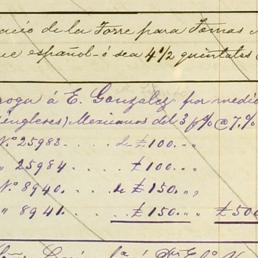 acio de la Torre para Tomas
que español ó sea 4 1/2 quintales
roga á E. Gonzalez por medio
(ingleses) Mexicanos del 3 p% @ 7.%
Nº 25983... de £100...
" 25984 £100..
Nº 8940. de £150..,,
" 8941. £150.,, £500